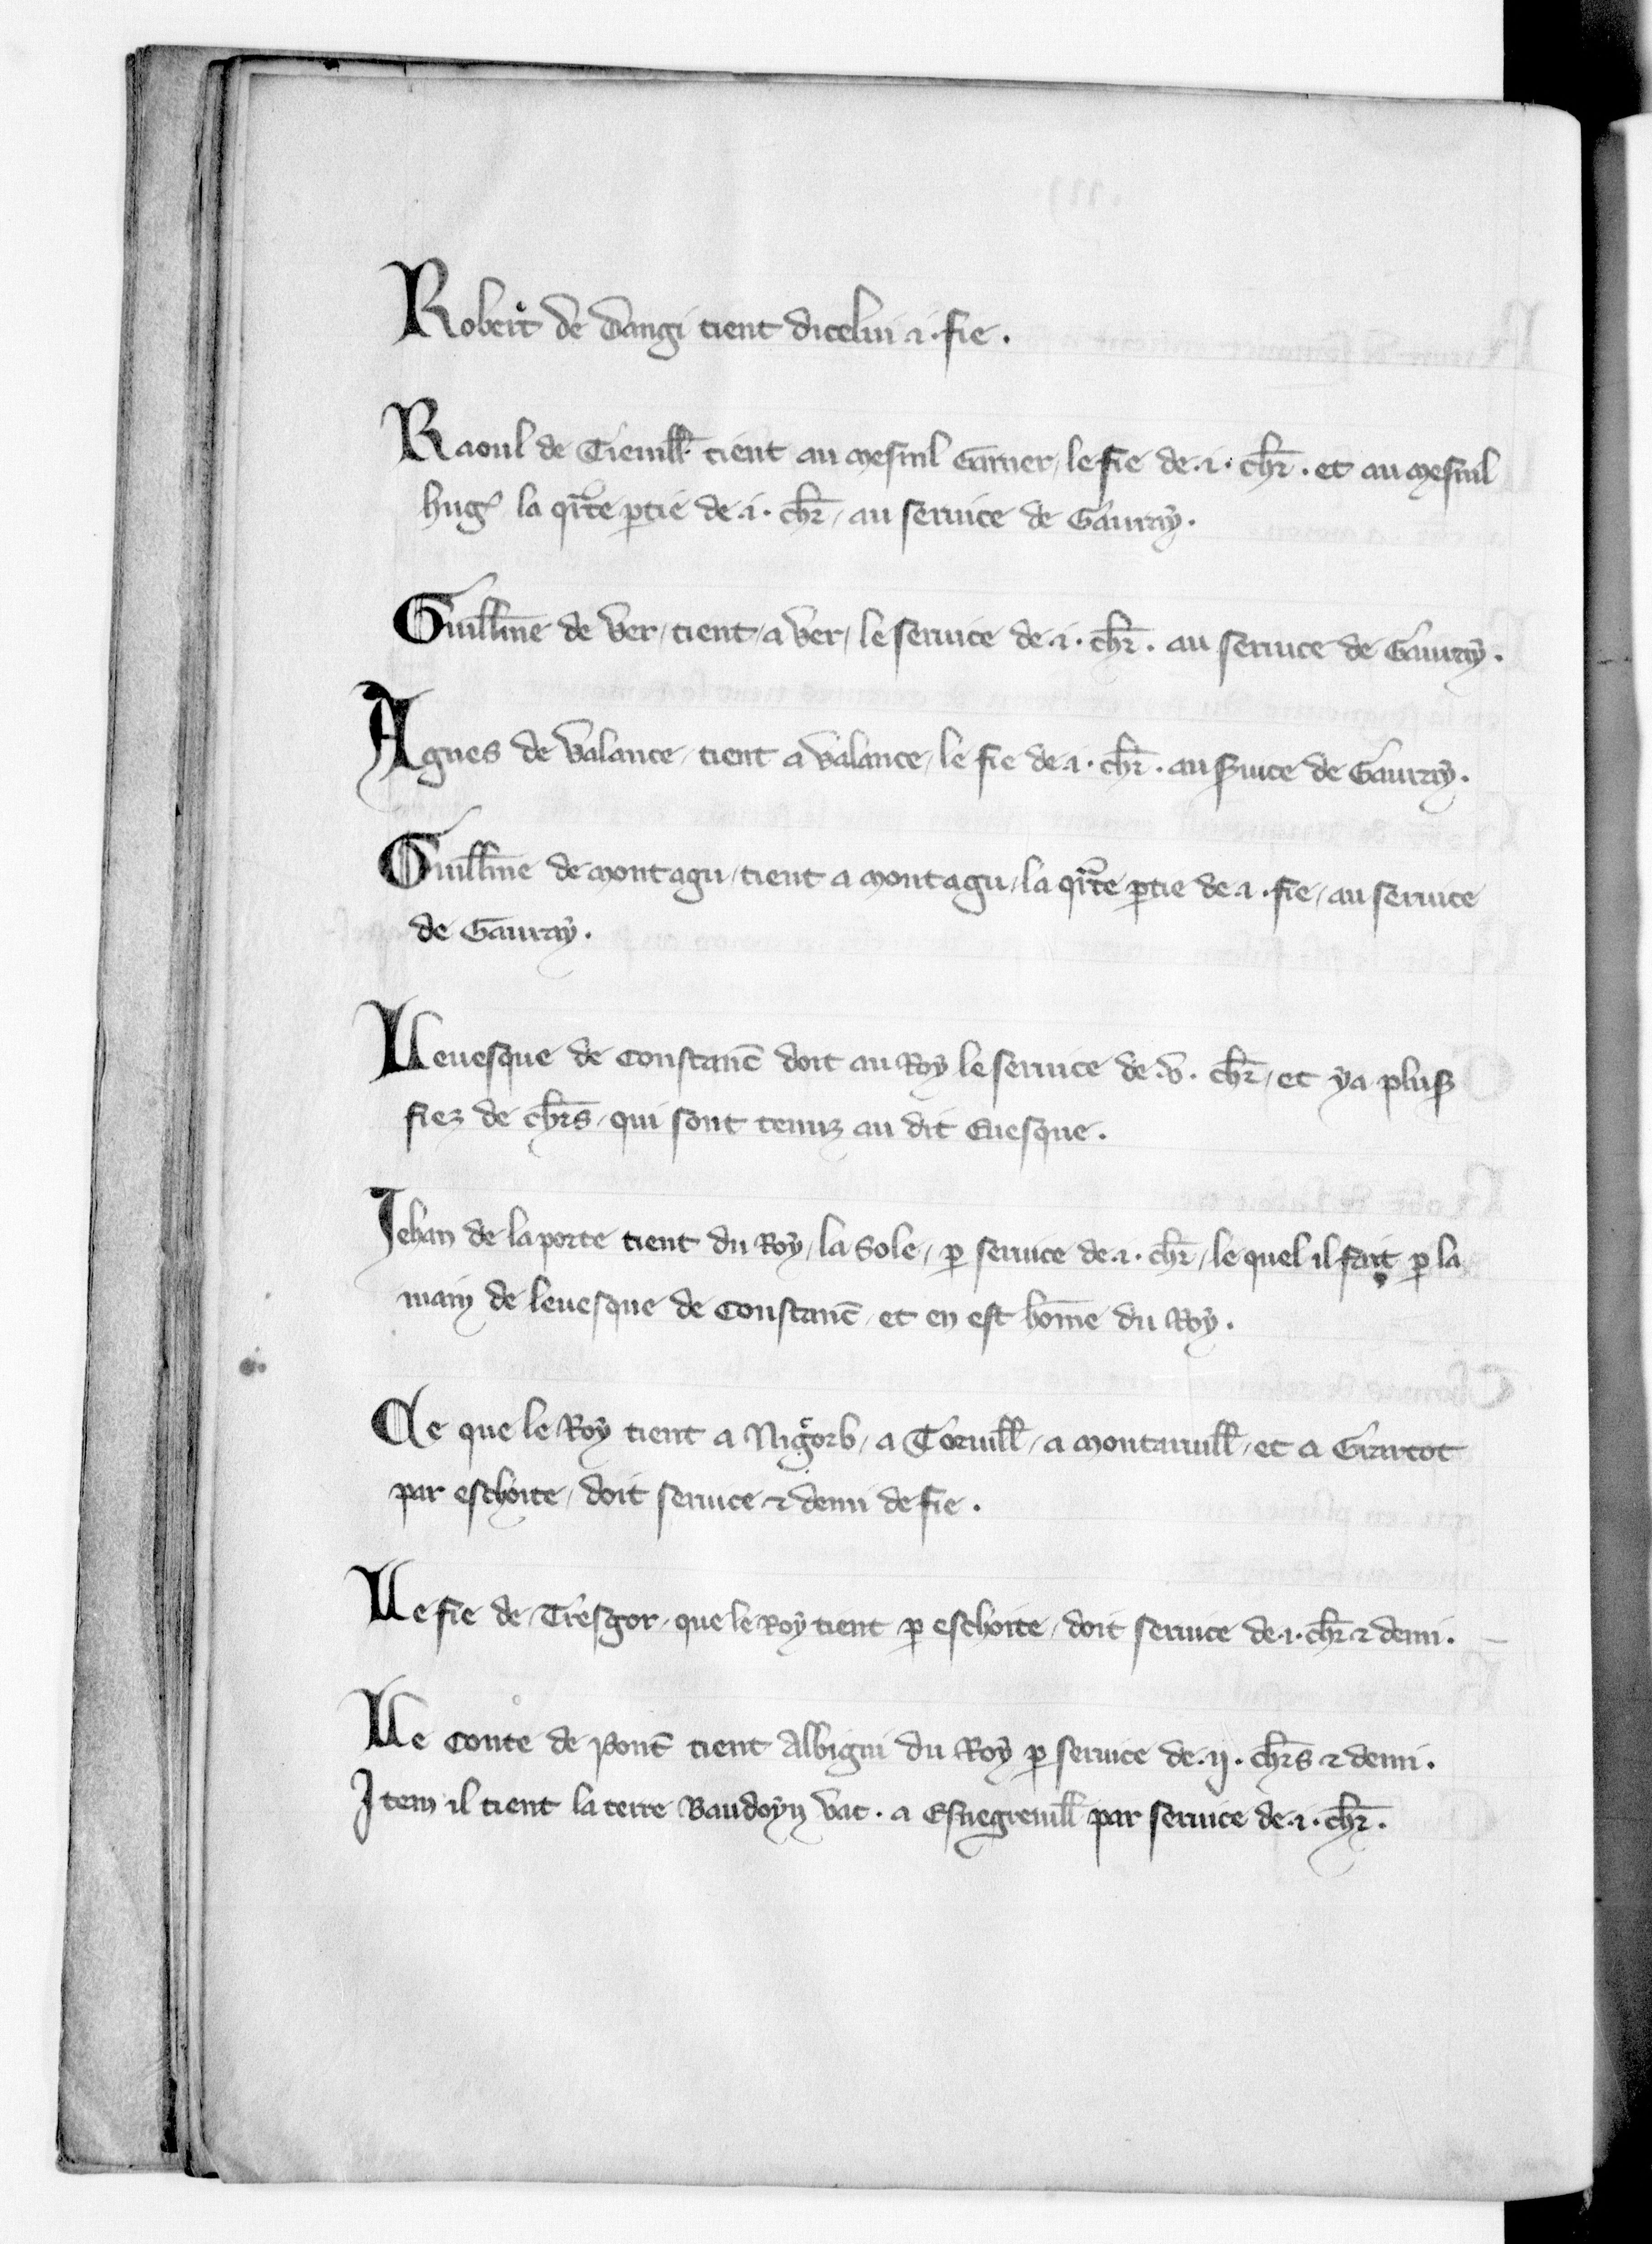 Robert de Dangi tient dicelui .i. fie.
Raoul de Tieuill̃ tient au mesnil Garner / le fie de .i. chr̃. et au mesnil
hug̃ la qͣrte ꝑtie de .i. chr̃ / au seruice de Gauray.
Guill̃me de Ver / tient / a Ver / le seruice de .i. chr̃. au seruice de Gauray.
Agnes de Valance / tient a Valance / le fie de .i. chr̃. au s̃uice de Gauray.
Guill̃me de montagu / tient a montagu / la qͣrte ꝑtie de .i. fie / au seruice
de Gauray.
Leuesque de Constanc̃ doit au Roy le seruice de .v. chr̃ / et ya plus̃
fiez de chrs̃ / qui sont tenuz au dit Euesque.
Jehan de la porte tient du Roy / la Sole / ꝑ seruice de .i. chr̃ / le quel il fait ꝑ la
main de leuesque de Constanc̃ / et en est hom̃e du Roy.
Ce que le Roy tient a Nigͦorb / a Toruill̃ / a montaruill̃ / et a Grartot
par eschoite / doit seruice ⁊ demi de fie.
Le fie de Tresgor / que le Roy tient ꝑ eschoite / doit seruice de .i. chr̃ ⁊ demi.
Le Conte de Pont̃ tient Albigni du Roy ꝑ seruice de .ij. chrs̃ ⁊ demi.
Item il tient la terre Baudoyn Vac. a Esnegreuill̃ par seruice de .i. chr̃.